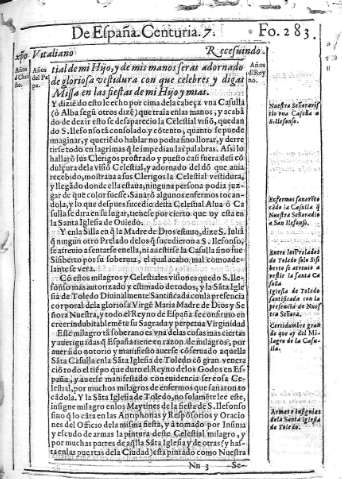 De España. Centuria. 7. Fo. 283.
Año Vitaliano Recesuindo.
tial de mi Hijo, y de mis manos seras adornado
de gloriosa vestidura con que celebres y digas
Missa en las fiestas de mi Hijo y mias.
Y diziédo esto le echo por cima de la cabeça vna Casulla
(ò Alba segũ otros dizẽ) que traia en las manos, y acabã
do de dezir esto se desaparecio la Celestial visiõ, quedan
do S. Ilefonso tã consolado, y cõtento, quanto se puede
imaginar, y queriẽdo hablar no podia sino llorar, y derre
tirse todo en lagrimas q̃ le impedian las palabras. Assi lo
hallarõ sus Clerigos prostrado y puesto casi fuera de si cõ
dulçura de la visiõ Celestial, y adornado del dõ que auia
recebido, mostrãta a sus Clerigos la Celestial vestidura,
y llegado donde ella estaua, ninguna persona podia juz
gar de què color fuesse. Sanarõ algunos enfermos tocan
dola, y lo que despues sucedio desta Celestial Alua ò Ca
sulla se dira en su lugar, tienese por cierto que oy esta en
la Santa Iglesia de Ouiedo.
Y en la Silla en q̃ la Madre de Dios estuuo, dize S. Juliã
q̃ ningun otro Prelado de los q̃ sucedieron a S. Ilefonso,
se atreuio a sentarse en ella, ni a vestirse la Casulla sino fue
Sisberto por su soberuia, el qual acabo mal como ade
lante se vera.
Cõ estos milagros y Celestiales visiones quedo S. Ile-
fonso mas autorizado y estimado de todos, y la Sãta Igle
sia de Toledo Diuinalmente Santificada con la presencia
corporal de la gloriosa Virgẽ Maria Madre de Dios y Se
ñora Nuestra, y todo el Reyno de España se confirmo en
creer indubitablemẽte su Sagrada y perpetua Virginidad
Esse milagro tã soberano es vna de las cosas mas ciertas
y aueriguadas q̃ España tiene en razon de milagros, por
auer sido notorio y manifiesto auerse cõseruado aquella
Sãta Casulla en la Sãta Iglesia de Toledo cõ gran venera
ciõ todo el tiẽpo que duro el Reyno de los Godos en Es-
paña, y auerse manifestado con euidencia ser cosa Ce-
lestial, por muchos milagros de enfermos que sanaron to
cãdola. Y la Sãta Iglesia de Toledo, no solamẽte lee este,
insigne milagro en los Maytines de la fiesta de S. Ilefonso
sino q̃ lo cãta en las Antiphonas y Responsorios y Oracio
nes del Oficio de la misma fiesta, y à tomado por Insinia
y escudo de armas la pintura deste Celestial milagro, y
por muchas partes de aq̃lla Sãta Iglesia y de otras (y has
ta en las puertas de la Ciudad) està pintado como Nuestra
Nn 3 Se-
Años
del Pa
pa.
Años
del Rey
no.
Nuestra Señora vis
tio vna Casulla a
S. Ilefonso.
Enfermos sanos to
cãdo la Casulla q̃
Nuestra Señora dio
a San Ilefonso.
Entre los Prelados
de Toledo solo Sis
berto se atreuio a
vestir la Santa Ca
sulla
Iglesia de Toledo
santificada con la
presencia de Nues
tra Señora.
Certidumbre gran
de que ay del Mi-
lagro de la Casu-
lla.
Armas e Insignias
de la Santa Iglesia
de Toledo.